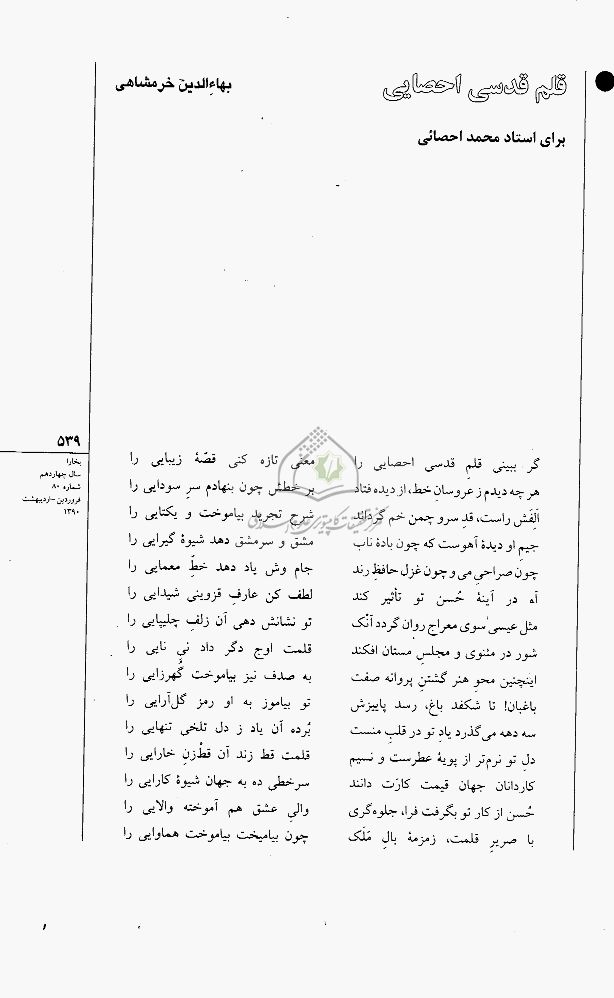 قلم قدسی احصایی
بهاءالدین خرمشاهی
برای استاد محمد احصائی
۵۳۹
بخارا
سال چهاردهم
شماره ۸۰
فروردین - اردیبهشت
۱۳۹۰
گر ببینی قلمِ قدسی احصایی را معنی تازه کنی قصّهٔ زیبایی را
هر چه دیدم ز عروسان خط، از دیده فتاد بر خطش چون بنهادم سرِ سودایی را
اَلِفَش راست، قدِ سرو چمن خم گرداند شرح تجرید بیاموخت و یکتایی را
جیمِ او دیدهٔ آهوست که چون بادهٔ ناب مشق و سرمشق دهد شیوهٔ گیرایی را
چون صراحیِ می و چون غزل حافظِ رند جام وش یاد دهد خطِّ معمایی را
آه در آینهٔ حُسن تو تأثیر کند لطف کن عارفِ قزوینی شیدایی را
مثل عیسی سوی معراج روان گردد آنک تو نشانش دهی آن زلفِ چلیپایی را
شور در مثنوی و مجلسِ مستان افکند قلمت اوج دگر داد نیِ نایی را
اینچنین محوِ هنر گشتنِ پروانه صفت به صدف نیز بیاموخت گُهرزایی را
باغبان! تا شکفد باغ، رسد پاییزش تو بیاموز به او رمز گل‌آرایی را
سه دهه می‌گذرد یادِ تو در قلبِ منست بُرده آن یاد ز دل تلخی تنهایی را
دلِ تو نرم‌تر از پویهٔ عطرست و نسیم قلمت قط زند آن قطْ‌زنِ خارایی را
کاردانان جهان قیمت کارَت دانند سرخطی ده به جهان شیوهٔ کارایی را
حُسن از کار تو بگرفت فرا، جلوه‌گری والیِ عشق هم آموخته والایی را
با صریرِ قلمت، زمزمهٔ بالِ مَلَک چون بیامیخت بیاموخت هماوایی را